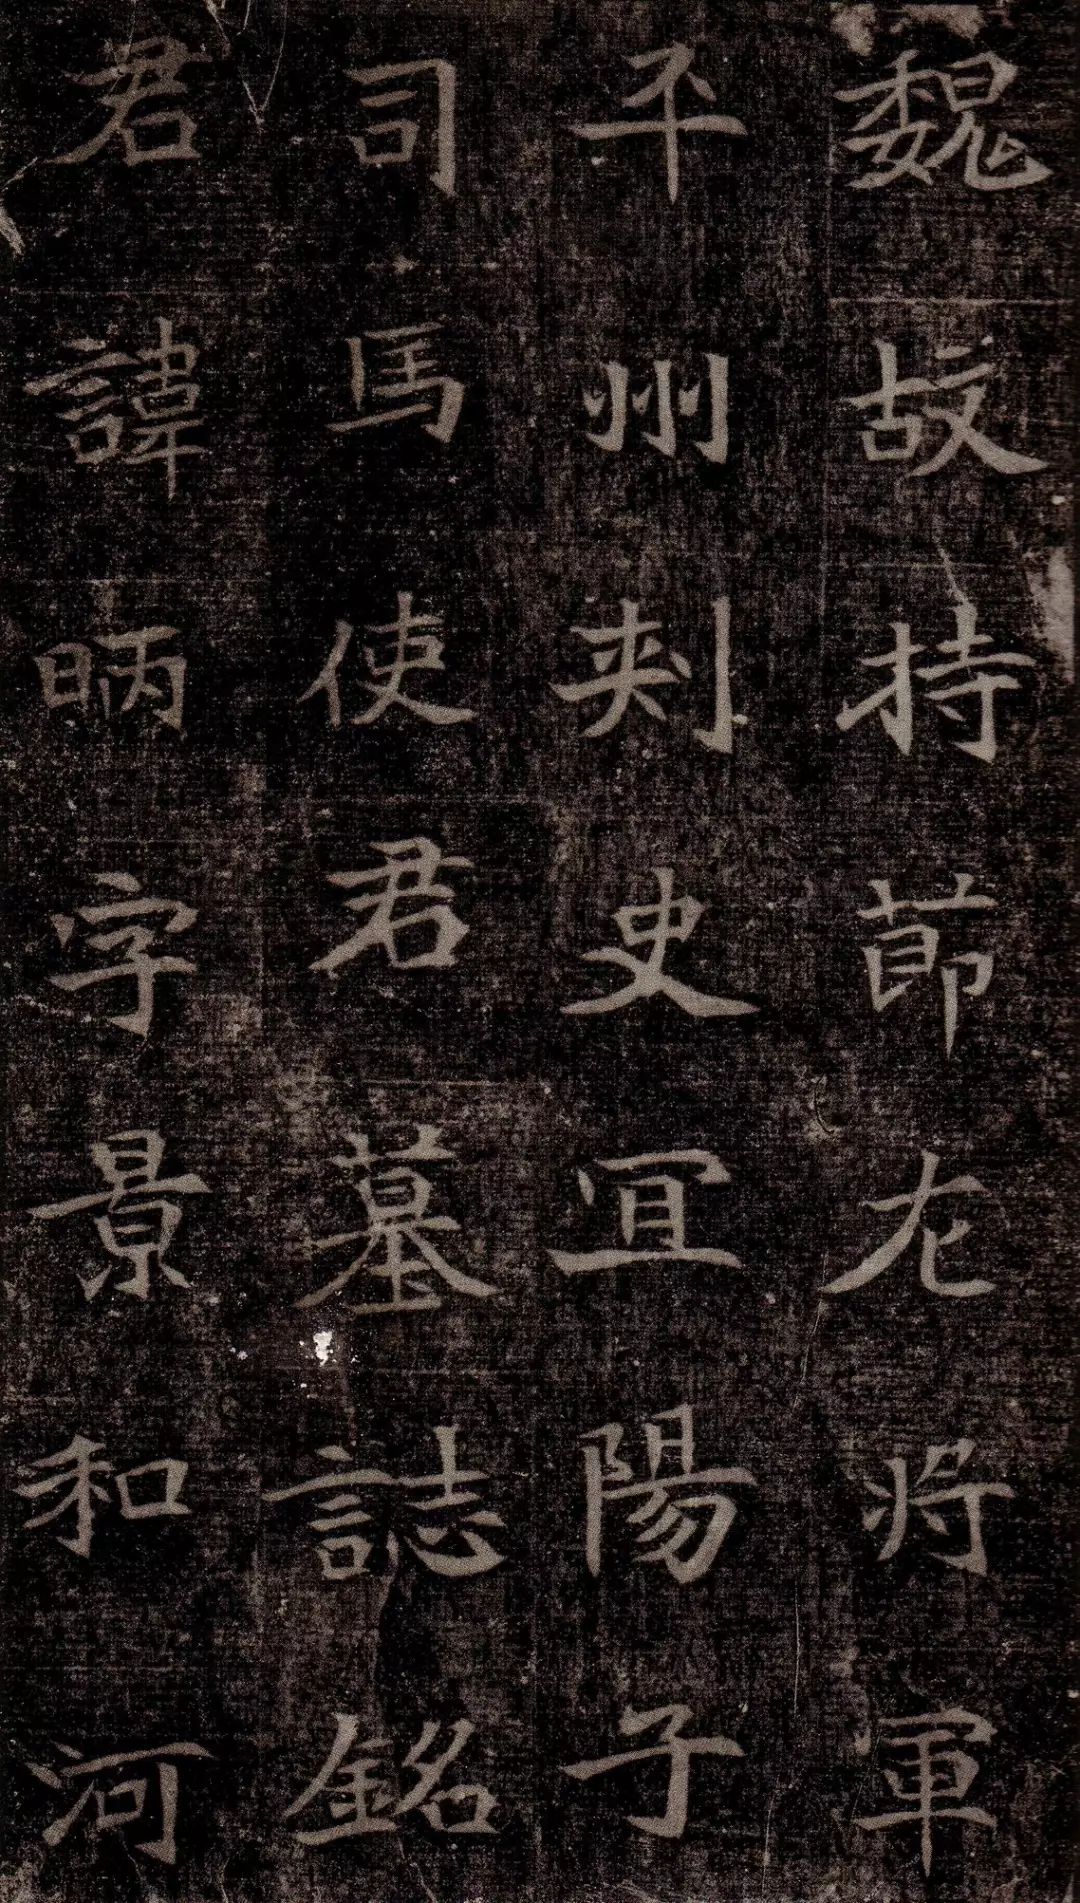 魏故持節左將軍
平州刾史宜陽子
司馬使君墓誌銘
君諱昞字景和河